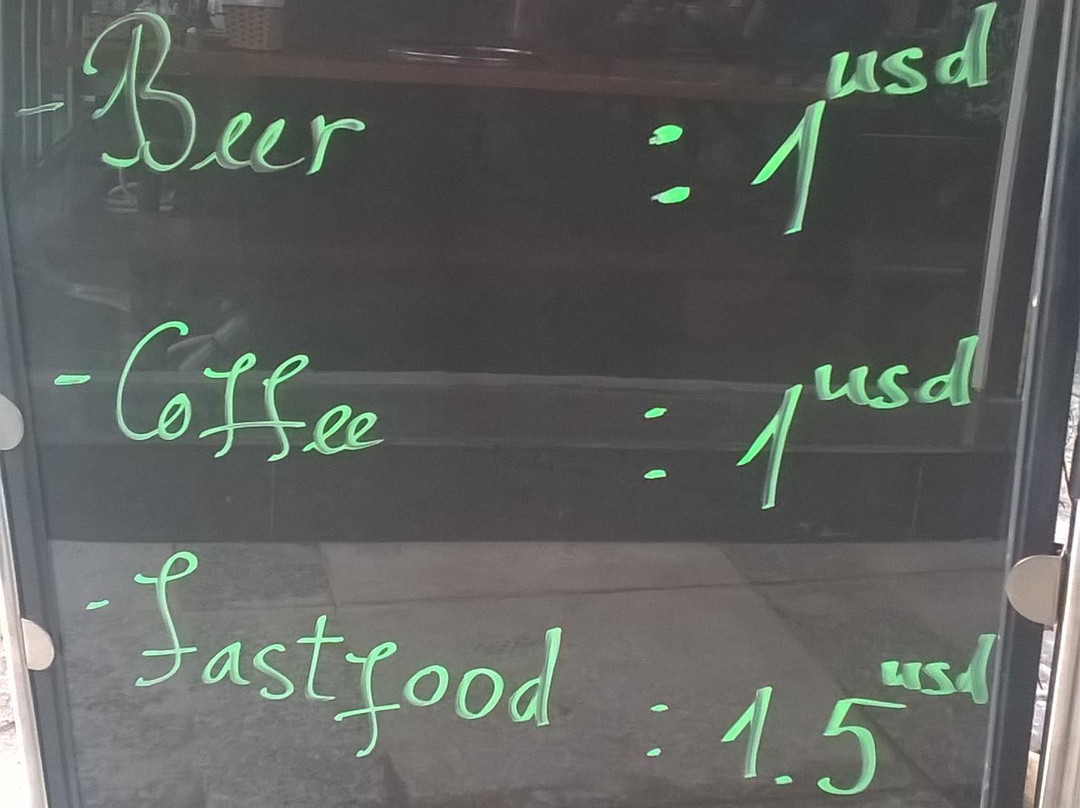 - Beer : 1 usd
- Coffee : 1 usd
- fastfood : 1.5 usd